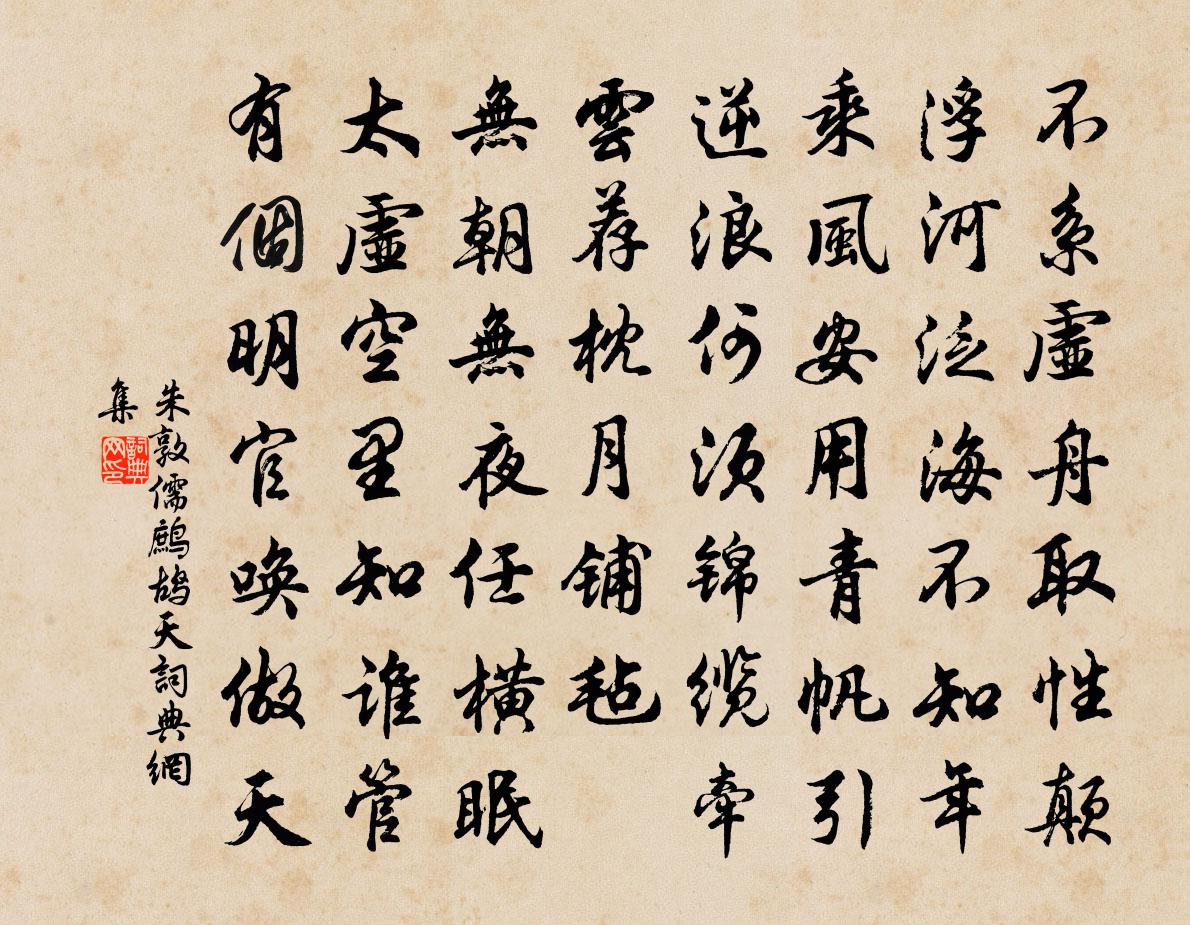 不系虛舟取性顛
浮河泛海不知年
乘風安用青帆引
逆浪何須錦纜牽
雲荐枕月鋪毡
無朝無夜任橫眠
太虛空里知誰管
有個明官喚做天
朱敦儒鷓鴣天詞典網
集
詞典网印